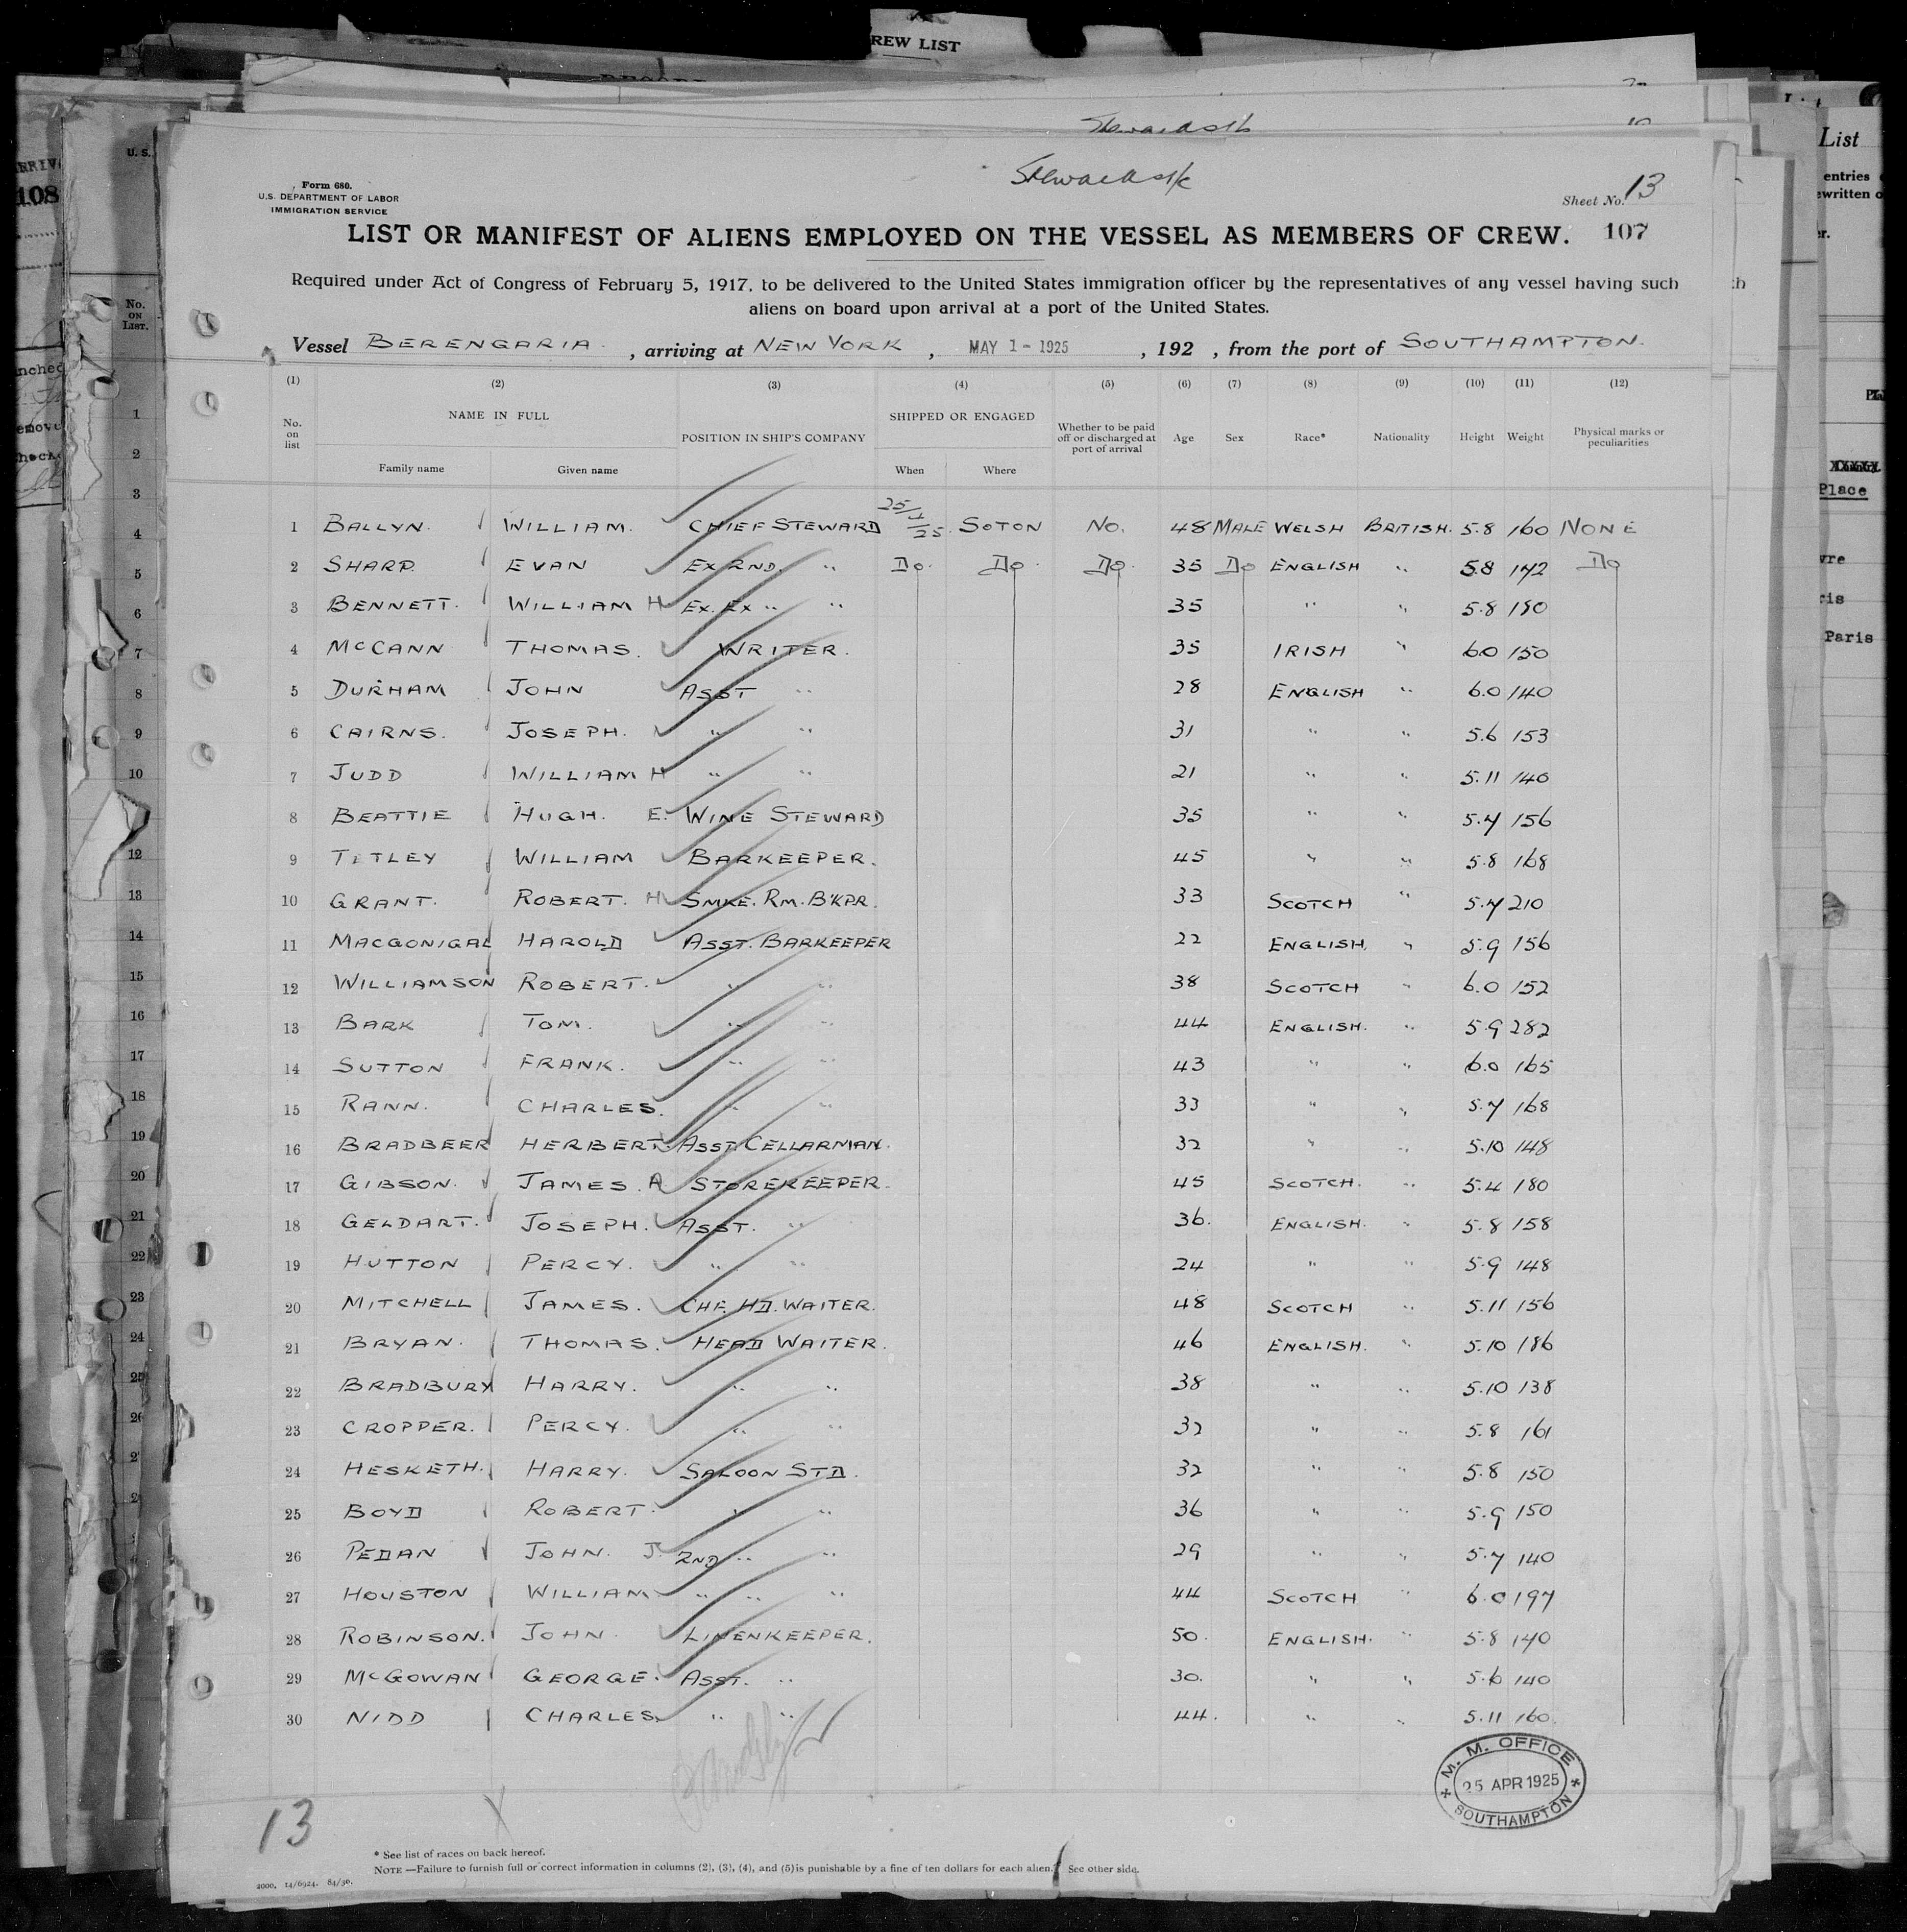 CREW LIST
Form 680.
U.S. DEPARTMENT OF LABOR
IMMIGRATION SERVICE
Sheet No. 13
LIST OR MANIFEST OF ALIENS EMPLOYED ON THE VESSEL AS MEMBERS OF CREW. 107
Required under Act of Congress of February 5, 1917, to be delivered to the United States immigration officer by the representatives of any vessel having such
aliens on board upon arrival at a port of the United States.
Vessel BERENGARIA, arriving at NEW YORK, MAY 1-1925, 192 , from the port of SOUTHAMPTON.
(1) (2) (3) (4) (5) (6) (7) (8) (9) (10) (11) (12)
No. on list NAME IN FULL Family name Given name POSITION IN SHIP'S COMPANY SHIPPED OR ENGAGED When Where Whether to be paid off or discharged at port of arrival Age Sex Race* Nationality Height Weight Physical marks or peculiarities
1 BALLYN. WILLIAM. CHIEF STEWARD 25/4/25. SOTON NO. 48 MALE WELSH BRITISH. 5.8 160 NONE
2 SHARP. EVAN EX 2ND. " Do. Do. Do. 35 Do ENGLISH " 5.8 172 Do
3 BENNETT. WILLIAM H EX. EX " " 35 " " 5.8 180
4 McCANN THOMAS. WRITER. 35 IRISH " 6.0 150
5 DURHAM JOHN ASST " 28 ENGLISH " 6.0 140
6 CAIRNS. JOSEPH. " " 31 " " 5.6 153
7 JUDD WILLIAM H " " 21 " " 5.11 140
8 BEATTIE HUGH. E. WINE STEWARD 35 " " 5.7 156
9 TETLEY WILLIAM BARKEEPER. 45 " " 5.8 168
10 GRANT. ROBERT. H SMKE. RM. B'KPR. 33 SCOTCH " 5.7 210
11 MACGONIGAL HAROLD ASST. BARKEEPER 22 ENGLISH. " 5.9 156
12 WILLIAMSON ROBERT. " " 38 SCOTCH " 6.0 152
13 BARK TOM. " " 44 ENGLISH. " 5.9 282
14 SUTTON FRANK. " " 43 " " 6.0 165
15 RANN. CHARLES. " " 33 " " 5.7 168
16 BRADBEER HERBERT. ASST. CELLARMAN. 32 " " 5.10 148
17 GIBSON. JAMES. A STOREKEEPER. 45 SCOTCH. " 5.4 180
18 GELDART. JOSEPH. ASST. " 36. ENGLISH. " 5.8 158
19 HUTTON PERCY. " " 24 " " 5.9 148
20 MITCHELL JAMES. CHF. HD. WAITER. 48 SCOTCH " 5.11 156
21 BRYAN. THOMAS. HEAD WAITER. 46 ENGLISH. " 5.10 186
22 BRADBURY HARRY. " " 38 " " 5.10 138
23 CROPPER. PERCY. " " 32 " " 5.8 161
24 HESKETH. HARRY. SALOON STD. 32 " " 5.8 150
25 BOYD ROBERT. " " 36 " " 5.9 150
26 PEDAN JOHN. J. 2ND " " 29 " " 5.7 140
27 HOUSTON WILLIAM " " " 44 SCOTCH " 6.0 197
28 ROBINSON. JOHN LINENKEEPER. 50. ENGLISH. " 5.8 140
29 McGOWAN GEORGE. ASST. " 30. " " 5.6 140
30 NIDD CHARLES. " " 44. " " 5.11 160
M. M. OFFICE
25 APR 1925
SOUTHAMPTON
13
* See list of races on back hereof.
NOTE—Failure to furnish full or correct information in columns (2), (3), (4), and (5) is punishable by a fine of ten dollars for each alien. See other side.
2000. 14/6924. 84/30.